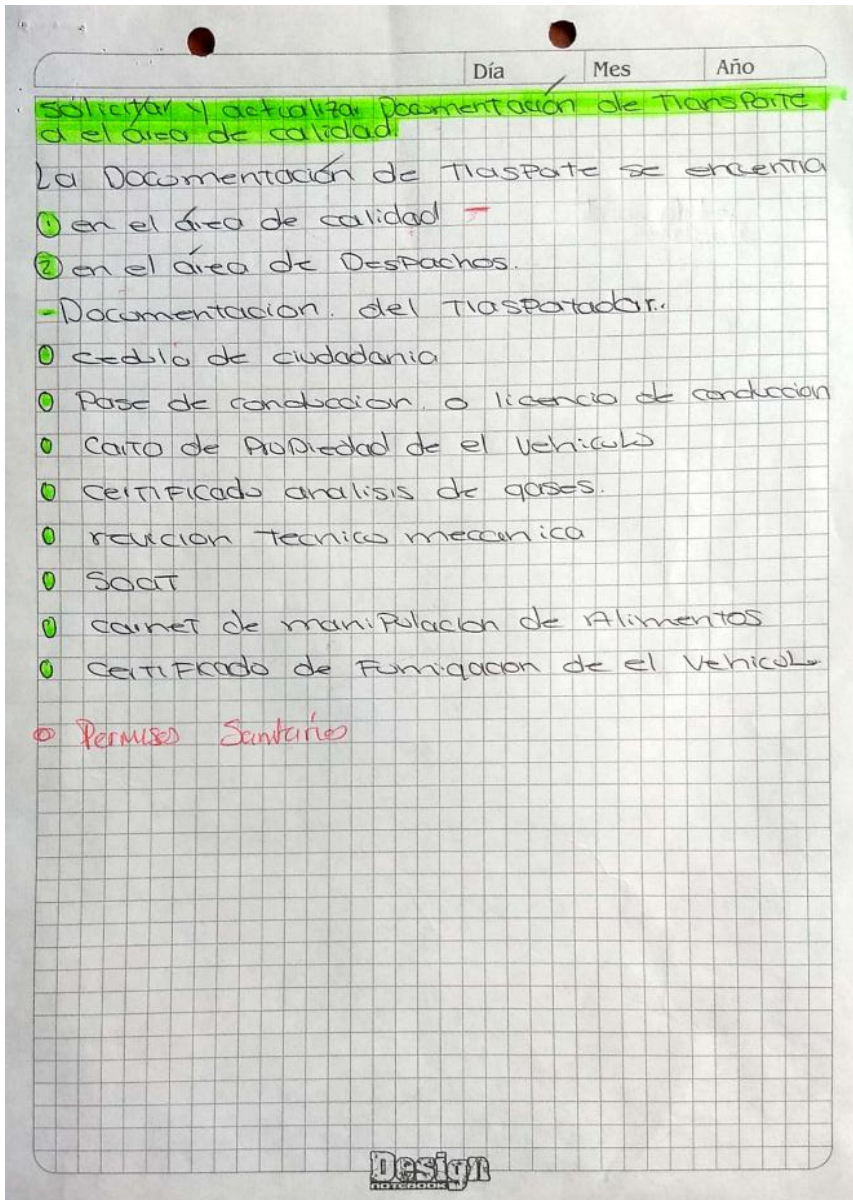 Día Mes Año
Solicitar y actualizar Documentación de Transporte
a el área de calidad.
La Documentación de Traspote se encuentra
① en el área de calidad -
② en el área de Despachos.
- Documentacion. del Traspotador.
cedula de ciudadania
Pase de conduccion. o licencia de conduccion
Carta de Propiedad de el Vehiculo
Certificado analisis de gases.
revicion tecnico meccanica
Soat
carnet de manipulacion de Alimentos
Certificado de Fumigacion de el Vehiculo
Permisos Sanitarios
Design
NOTEBOOK